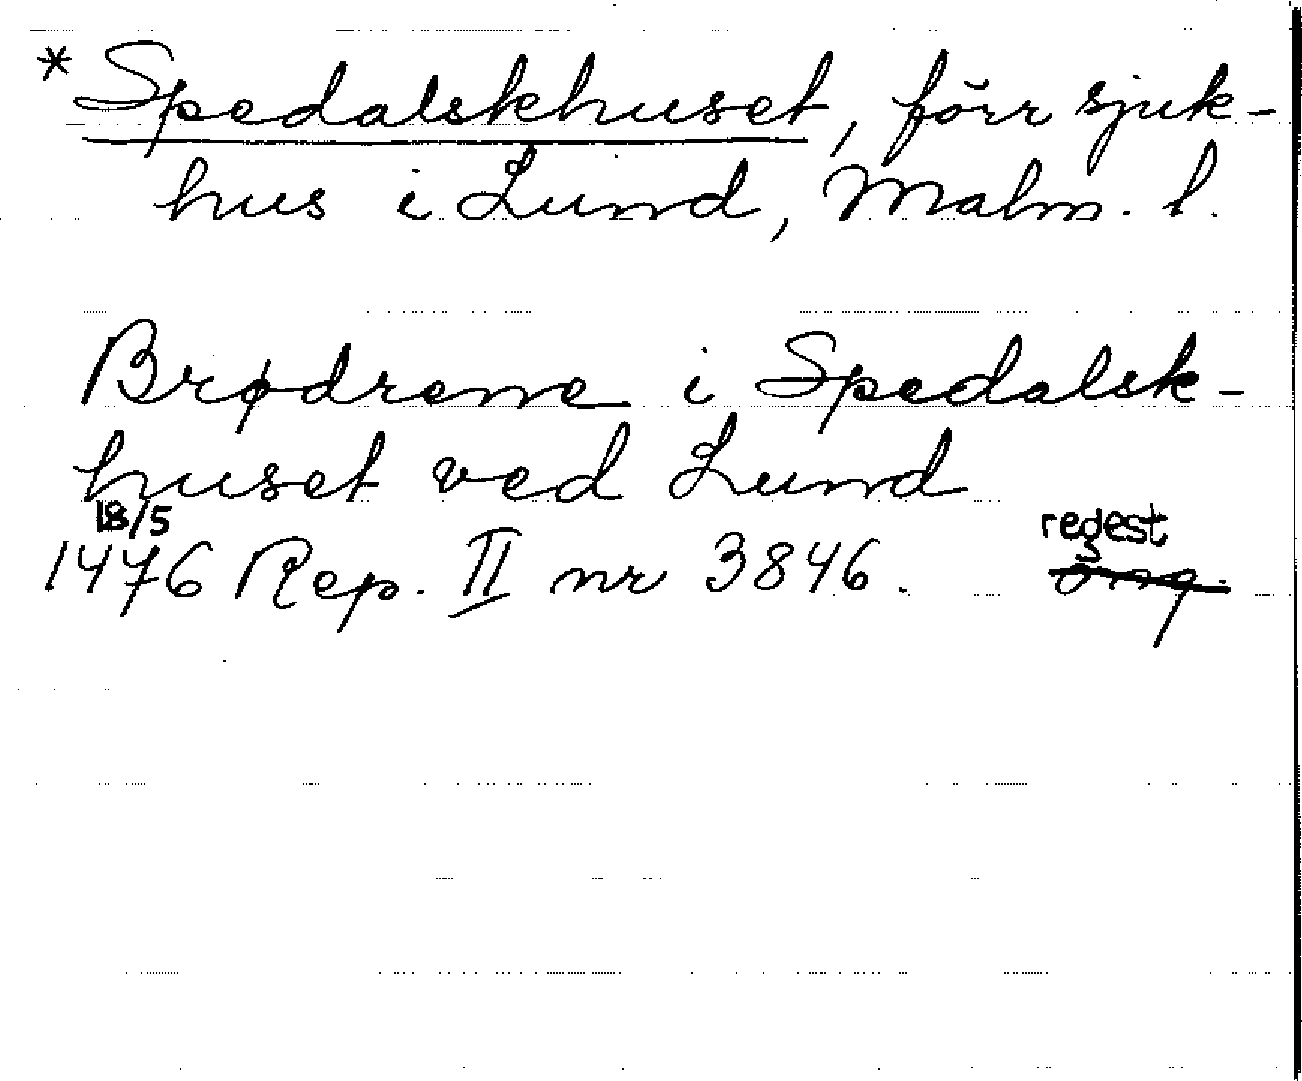 * Spedalskhuset, förr sjuk-
hus i Lund, Malm. l.
Brødrene i Spedalsk-
huset ved Lund
18/5
1476 Rep. II nr 3846. regest